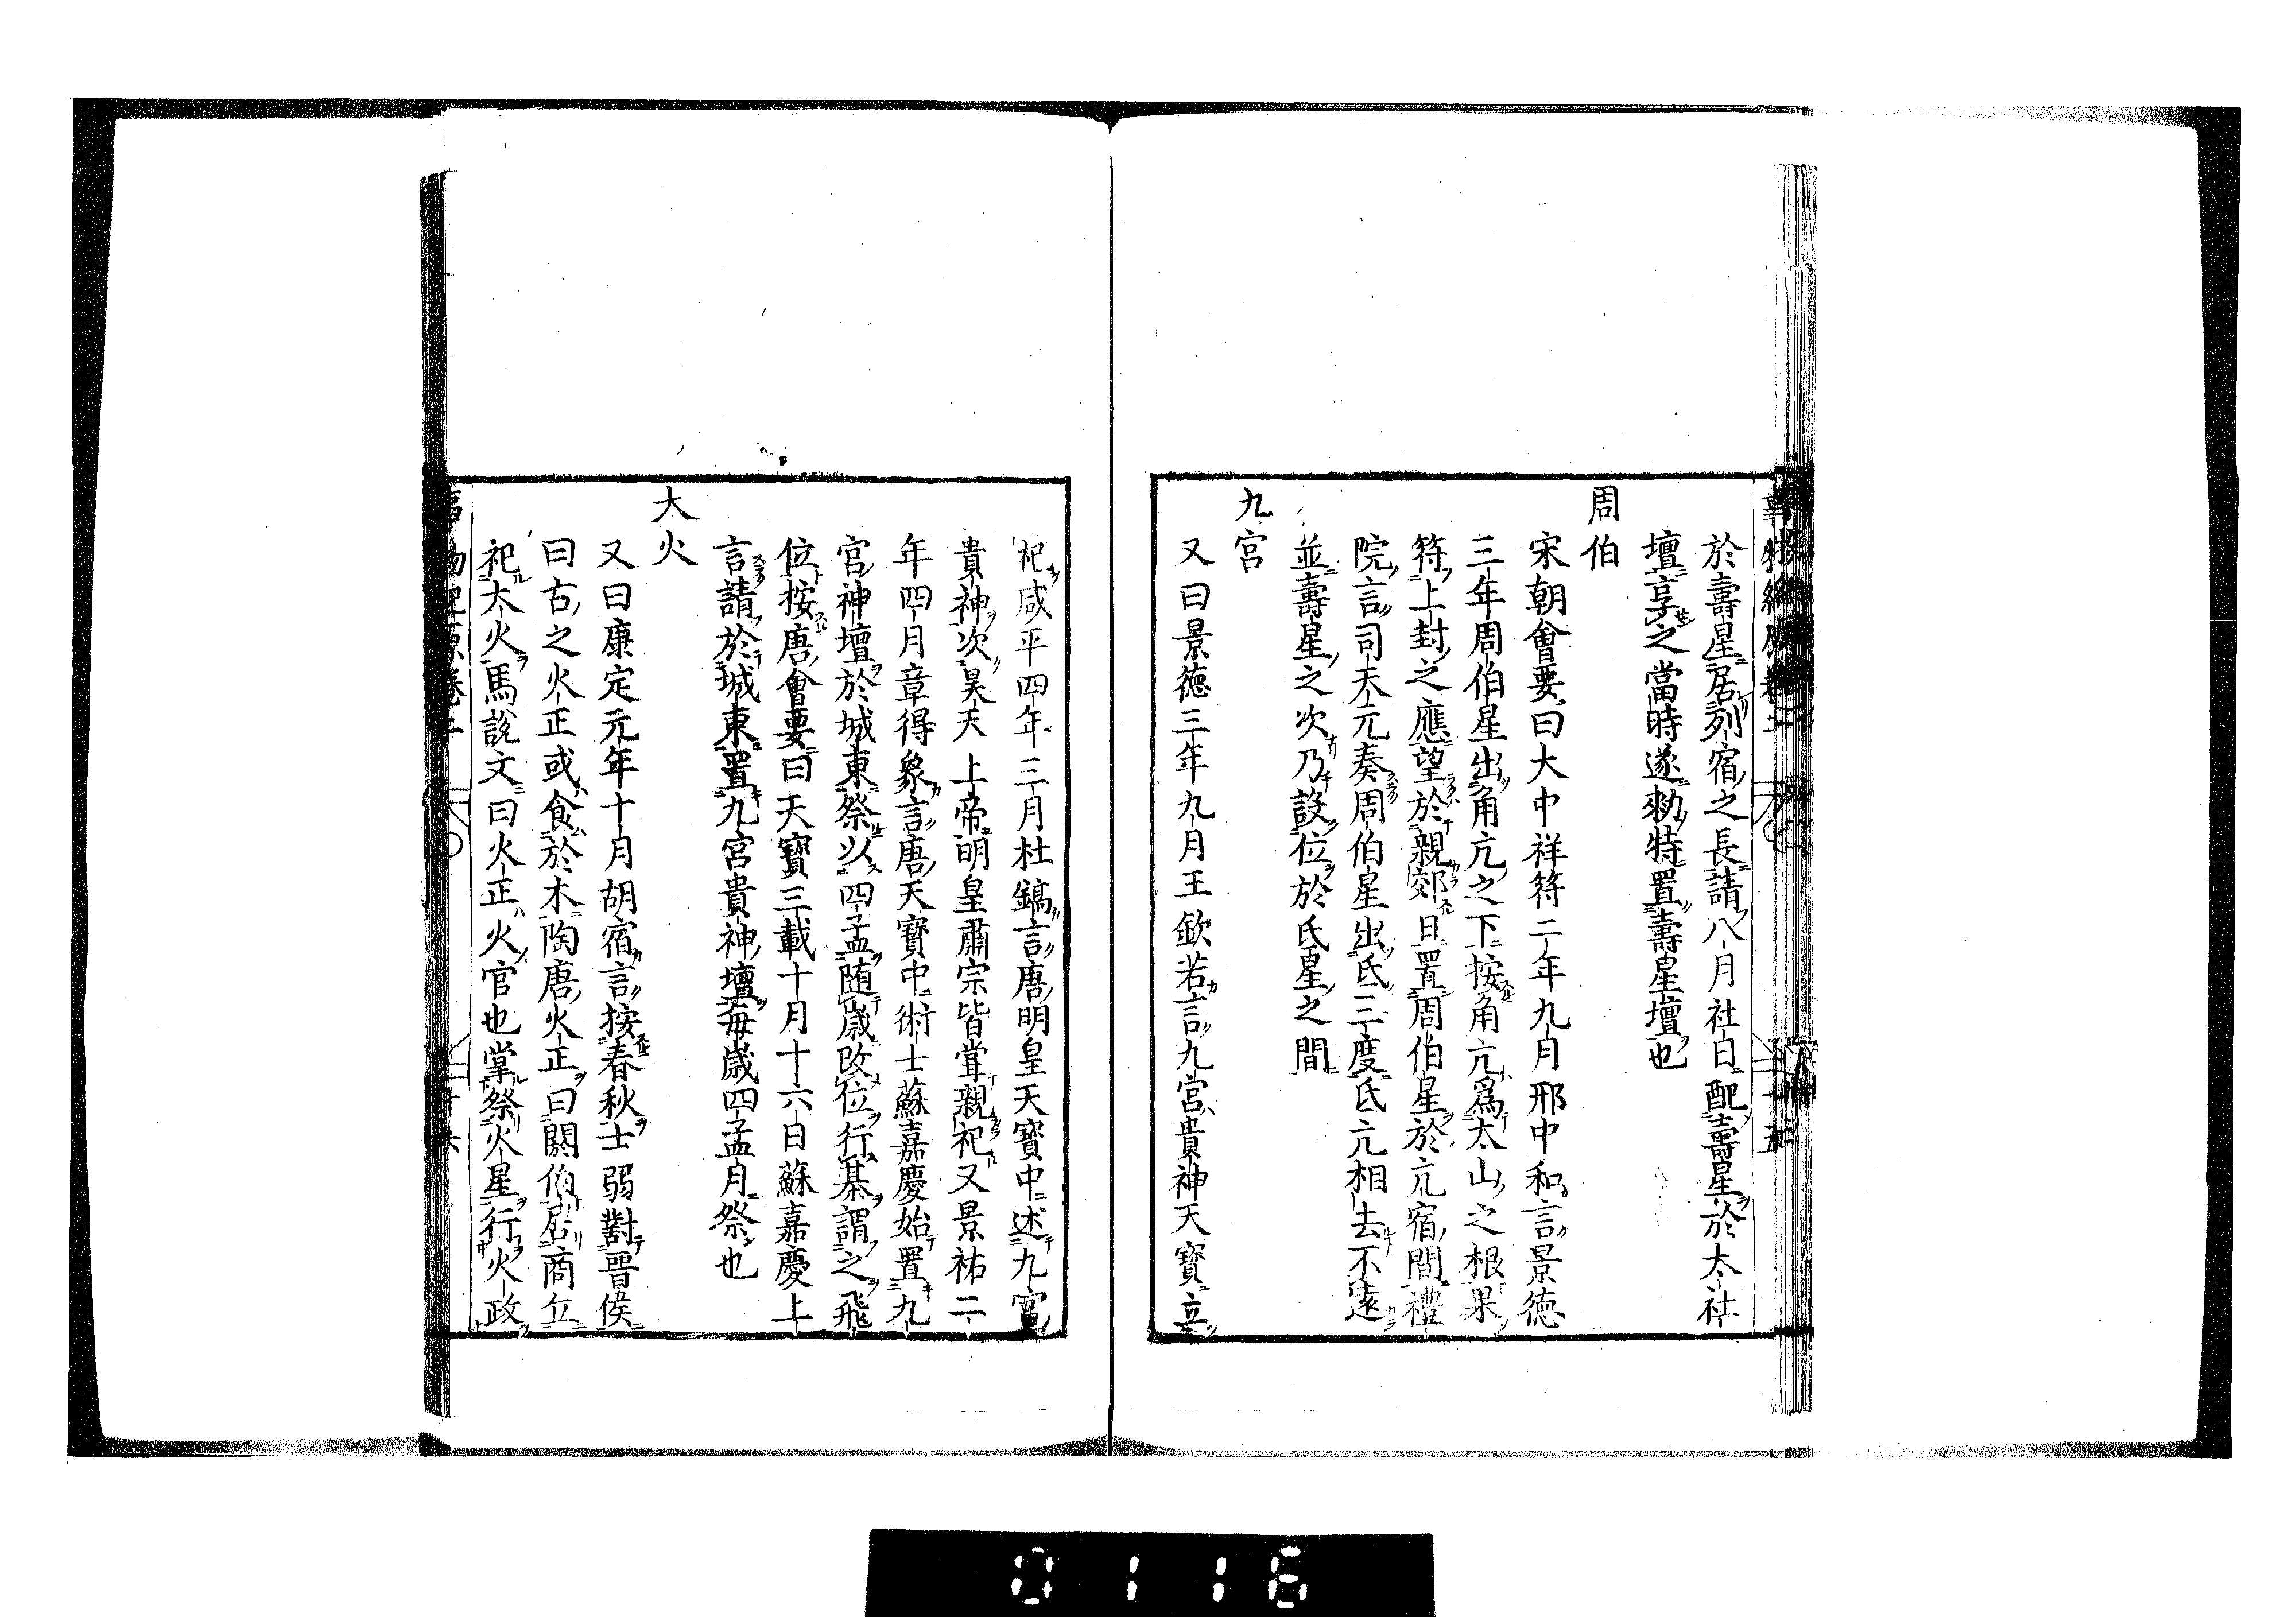 於壽星居列宿之長請八月社日配壽星於太社
壇享之當時遂勑特置壽星壇也
周伯
宋朝會要曰大中祥符二年九月邢中和言景德
三年周伯星出角亢之下按角亢爲太山之根果
符上封之應望於親郊日置周伯星於亢宿間禮
院言司天元奏周伯星出氐三度氐亢相去不遠
並壽星之次乃設位於氐星之間
九宮
又曰景德三年九月王欽若言九宮貴神天寶立
祀咸平四年三月杜鎬言唐明皇天寶中述九宮
貴神次昊天上帝明皇肅宗皆甞親祀又景祐二
年四月章得象言唐天寶中術士蘇嘉慶始置九
宮神壇於城東祭以四孟随歲改位行棊謂之飛
位按唐會要曰天寶三載十月十六日蘇嘉慶上
言請於城東置九宮貴神壇每歲四孟月祭也
大火
又曰康定元年十月胡宿言按春秋士弱對晋侯
曰古之火正或食於木陶唐火正曰閼伯居商丘
祀大火焉說文曰火正火官也掌祭火星行火政
0116